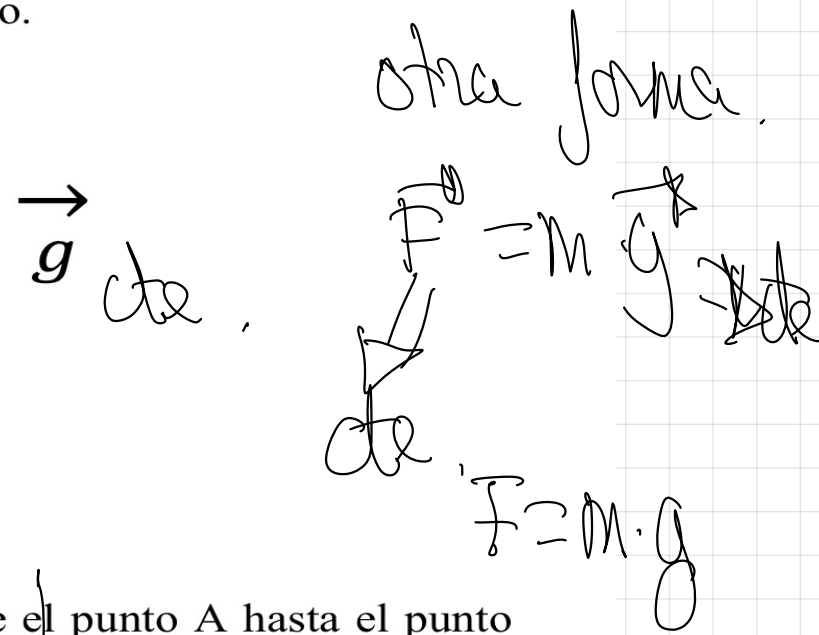 o.
otra forma.
g cte.
F = m g ⇒ cte
cte.
F = m · g
e el punto A hasta el punto